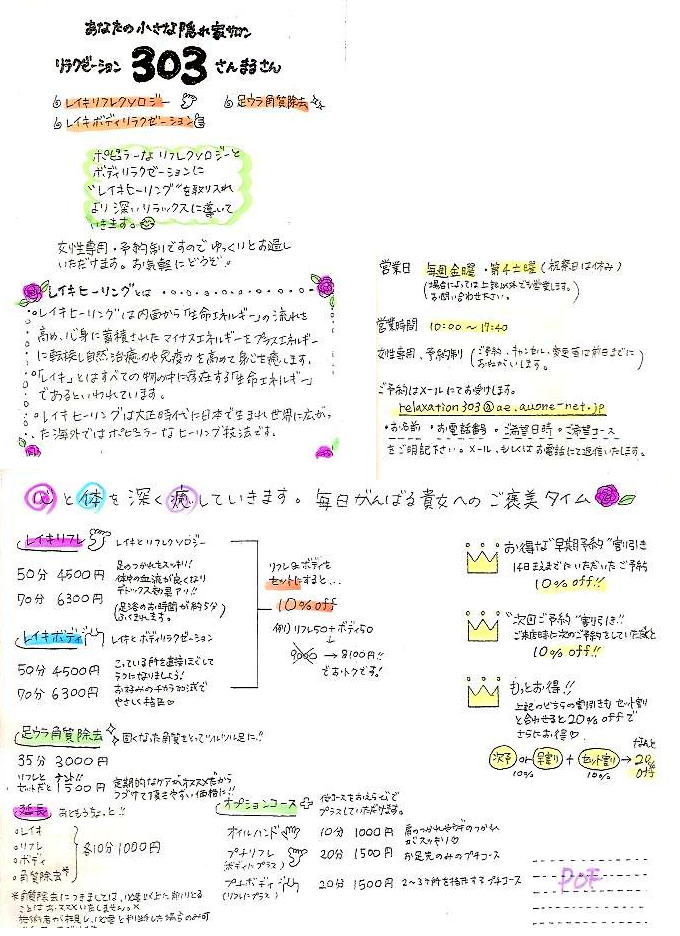 あなたの小さな隠れ家サロン
リラクゼーション 303 さんまるさん
レイキリフレクソロジー
足ウラ角質除去
レイキボディリラクゼーション
ポピュラーなリフレクソロジーと
ボディリラクゼーションに
"レイキヒーリング"を取り入れ
より深いリラックスに導いて
いきます。
女性専用・予約制ですのでゆっくりとお過し
いただけます。お気軽にどうぞ♪
レイキヒーリングとは
レイキヒーリングは内面から「生命エネルギー」の流れを
高め、心身に蓄積されたマイナスエネルギーをプラスエネルギー
に転換し自然治癒力や免疫力を高めて身心を癒します。
「レイキ」とはすべての物の中に存在する「生命エネルギー」
であるといわれています。
レイキヒーリングは大正時代に日本で生まれ世界に広がっ
た海外ではポピュラーなヒーリング技法です。
営業日 毎週金曜・第4土曜(祝祭日は休み)
(場合によっては上記以外でも営業します。
お問い合わせ下さい。)
営業時間 10:00〜17:40
女性専用、予約制(ご予約・キャンセル・変更等は前日までに
おねがいします。)
ご予約はメールにてお受けします。
relaxation303@ae.auone-net.jp
・お名前・お電話番号・ご希望日時・ご希望コース
をご明記下さい。メール、もしくはお電話にて返信いたします。
心と体を深く癒していきます。毎日がんばる貴女へのご褒美タイム
レイキリフレ レイキとリフレクソロジー
50分 4500円
70分 6300円
足のつかれもスッキリ!!
体中の血流が良くなり
デトックス効果アリ!!
(足浴のお時間が約5分
ふくまれます。)
レイキボディ レイキとボディリラクゼーション
50分 4500円
70分 6300円
こっている所を直接ほぐして
ラクになりましょう!
お好みのチカラ加減で
やさしく指圧♡
リフレ&ボディを
セットにすると…
10%off
例)リフレ50+ボディ50
↓
9000→8100円!!
でおトクです!
お得な"早期予約"割引き
14日まえまでにいただいたご予約
10%off!!
"次回ご予約"割引き!!
ご来店時に次のご予約をしていただくと
10%off!!
もっとお得!!
上記のどちらの割引きも セット割
と合わせると20%offで
さらにお得♡
次予 or 早割 + セット割 → なんと 20% off
10% 10%
足ウラ角質除去 固くなった角質をとってツルツル足に!!
35分 3000円
リフレと
セットだと ナント!! 1500円
定期的なケアがオススメだから
つづけて頂きやすい価格に!!
延長 おともうちょっと!!
レイキ
リフレ
ボディ
角質除去*
各10分1000円
オプションコース+
オイルハンド 10分 1000円
プチリフレ 20分 1500円 お足先のみのプチコース
(ボディにプラス)
プチボディ 20分 1500円 2〜3ヶ所を指圧するプチコース
(リフレにプラス)